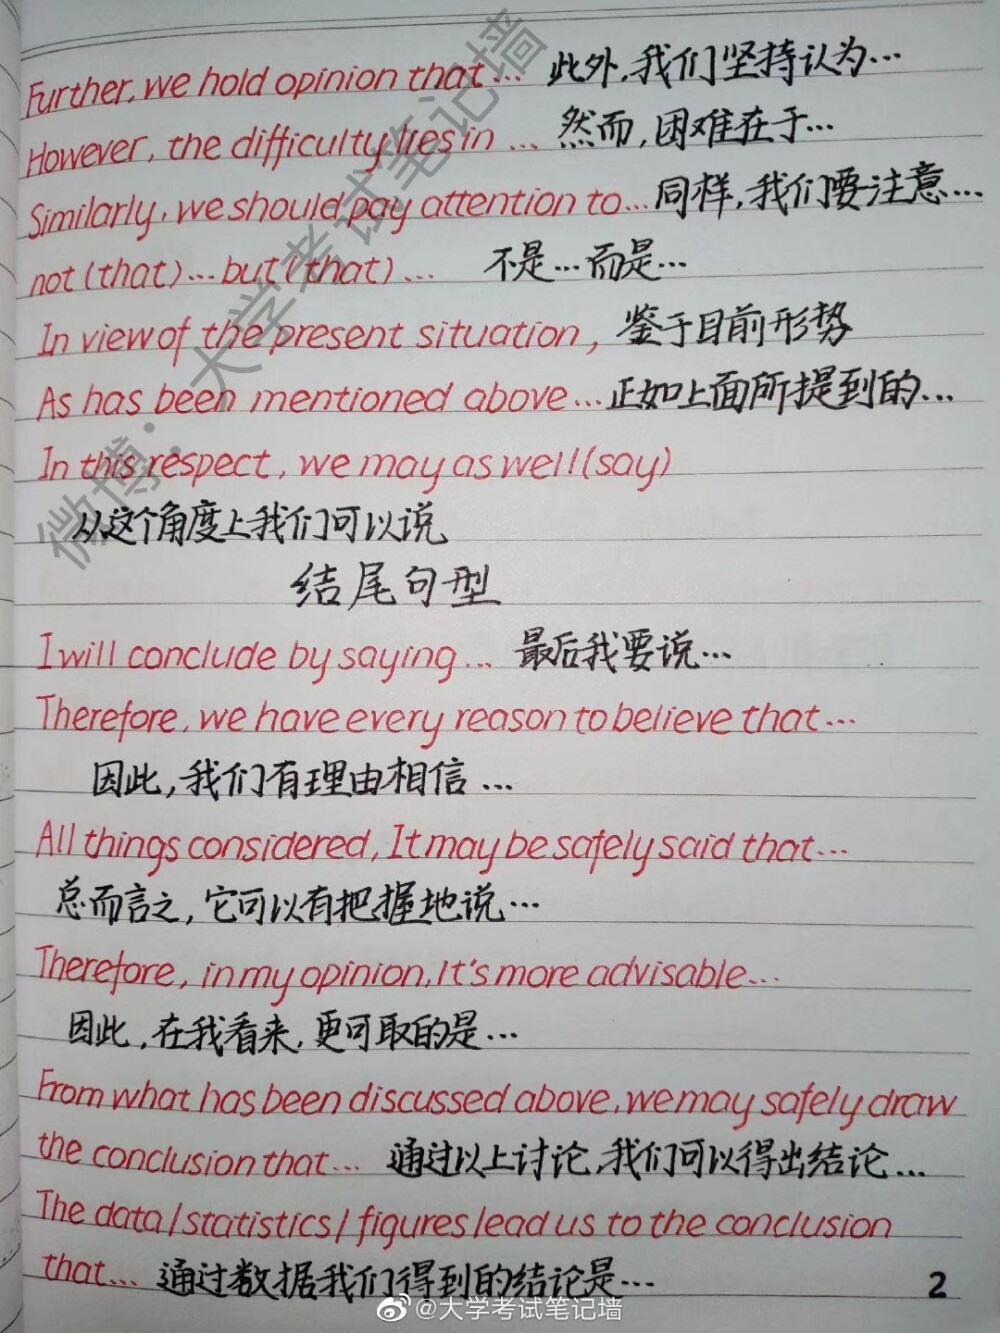 Further, we hold opinion that... 此外,我们坚持认为...
However, the difficulty lies in ... 然而,困难在于...
Similarly, we should pay attention to... 同样,我们要注意...
not (that) ... but (that) ... 不是...而是...
In view of the present situation, 鉴于目前形势
As has been mentioned above... 正如上面所提到的...
In this respect, we may as well (say)
从这个角度上我们可以说
结尾句型
I will conclude by saying... 最后我要说...
Therefore, we have every reason to believe that...
因此,我们有理由相信...
All things considered, It may be safely said that...
总而言之,它可以有把握地说...
Therefore, in my opinion, It's more advisable...
因此,在我看来,更可取的是...
From what has been discussed above, we may safely draw
the conclusion that... 通过以上讨论,我们可以得出结论...
The data/statistics/figures lead us to the conclusion
that... 通过数据我们得到的结论是...
2
微博:大学考试笔记墙
@大学考试笔记墙